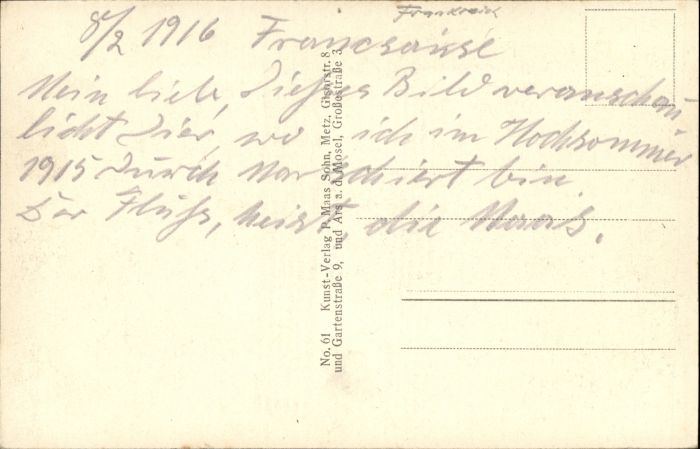 Frankreich
8/2 1916 Francsaisse
Mein liebe, Dieses Bild veranschau
licht Dier, wo ich im Hochsommer
1915 Durch Marschiert bin.
Der Fluss, heist, die Maas.
No. 61 Kunst-Verlag P. Maas Sohn, Metz, Gisorstr. 8
und Gartenstraße 9, und Ars a. d. Mosel, Großestraße 3